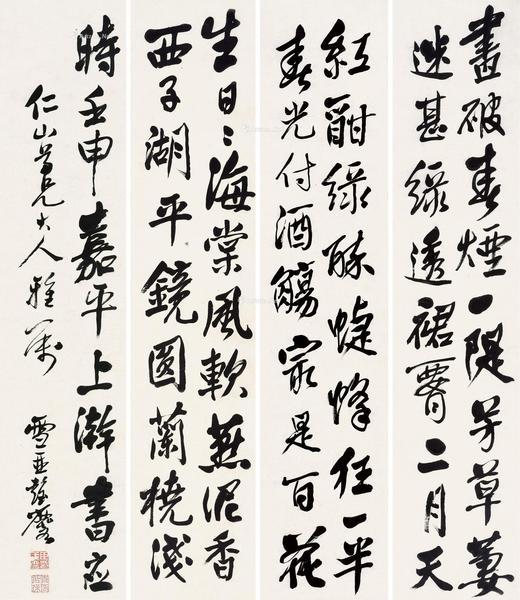 畫破春煙一隄芳草萋
迷甚綠透裙腰二月天
紅酣綠醉蜨蜂狂一半
春光付酒觴㝡是百花
生日〻海棠風軟燕泥香
西子湖平鏡圓蘭橈淺
時壬申嘉平上澣書应
仁山尊兄大人雅属
雪